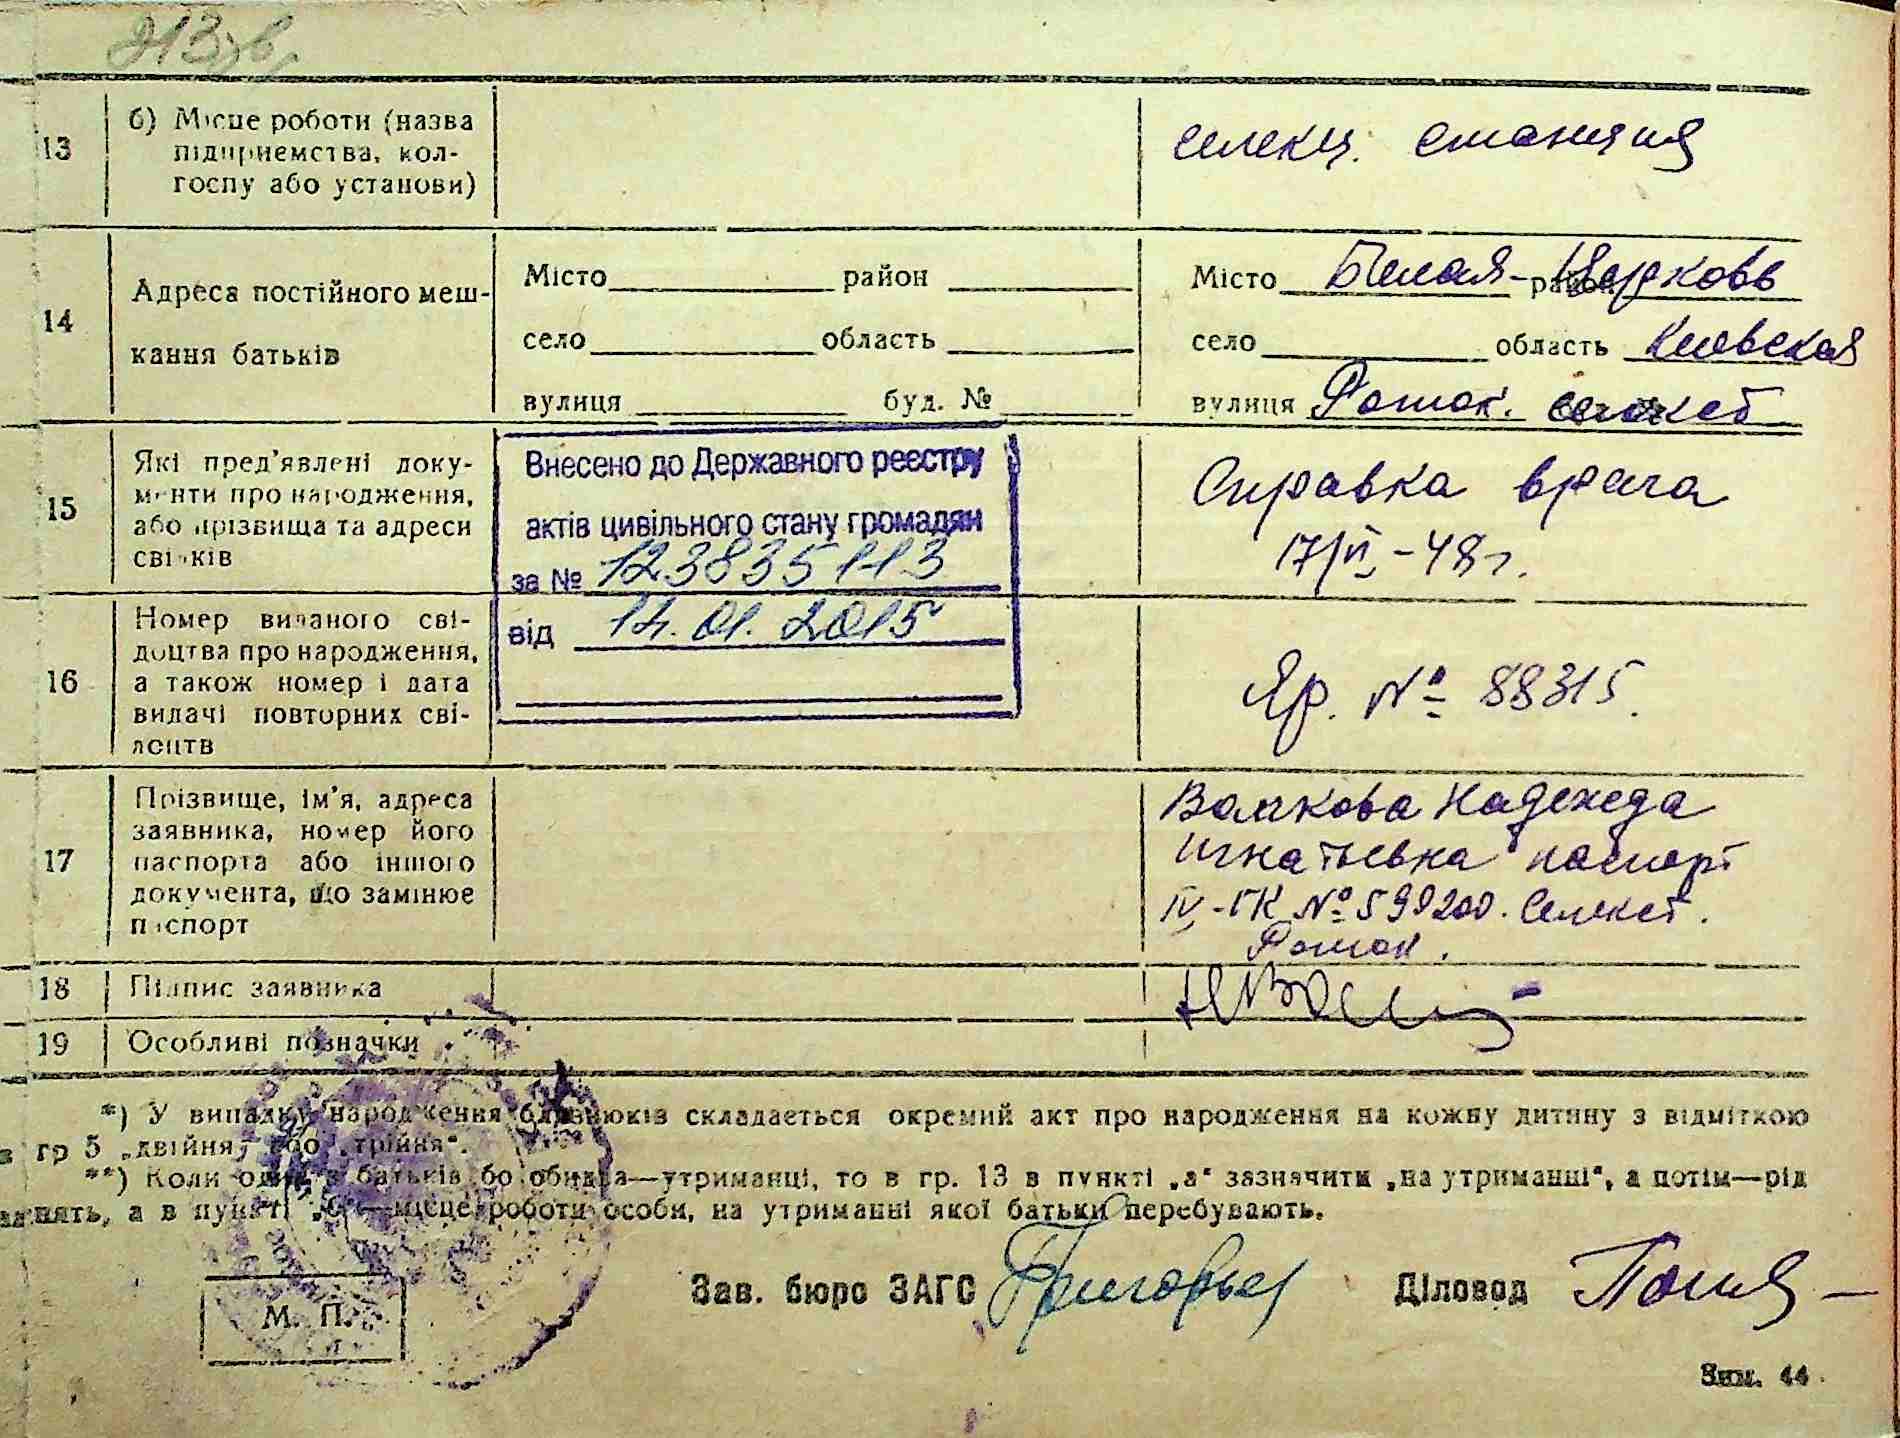 13 б) Місце роботи (назва
підприємства, кол-
госпу або установи)
селекц. станция
14 Адреса постійного меш-
кання батьків
Місто район
село область
вулиця буд. №
Місто Белая-Церковь район
село область Киевская
вулиця Роток. селекст
15 Які пред'явлені доку-
менти про народження,
або прізвища та адреси
свідків
Внесено до Державного реєстру
актів цивільного стану громадян
за № 123835113
від 14.01.2015
Справка врача
17/VI-48г.
16 Номер виданого сві-
доцтва про народження,
а також номер і дата
видачі повторних сві-
доцтв
Яр. № 88315.
17 Прізвище, ім'я, адреса
заявника, номер його
паспорта або іншого
документа, що замінює
паспорт
Волкова Надежда
Игнатьевна паспорт
IV-ГК № 599200. Селекст.
Роток.
18 Підпис заявника
19 Особливі позначки
*) У випадку народження близнюків складається окремий акт про народження на кожну дитину з відміткою
в гр 5 „двійня, або „трійня“.
**) Коли один з батьків або обидва—утриманці, то в гр. 13 в пункті „а“ зазначити „на утриманні“, а потім—рід
занять, а в пункті „б“—місце роботи особи, на утриманні якої батьки перебувають.
Зав. бюро ЗАГС Діловод
М. П.
Зам. 44